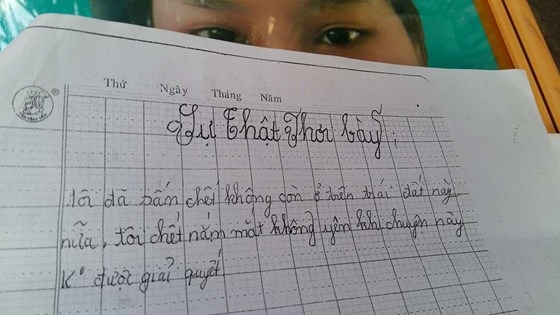 Thứ Ngày Tháng Năm
Sự thật Phơi bày:
Tôi đã chết không còn ở trên trái đất này
nữa, tôi chết nắm mắt không yên khi chuyện này
K° được giải quyết